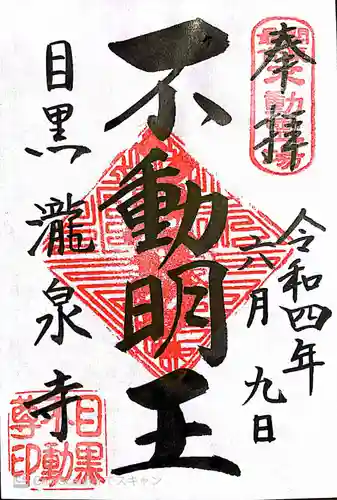 奉拝
令和四年
六月九日
不動明王
目黒瀧泉寺
目黒
不動
尊印